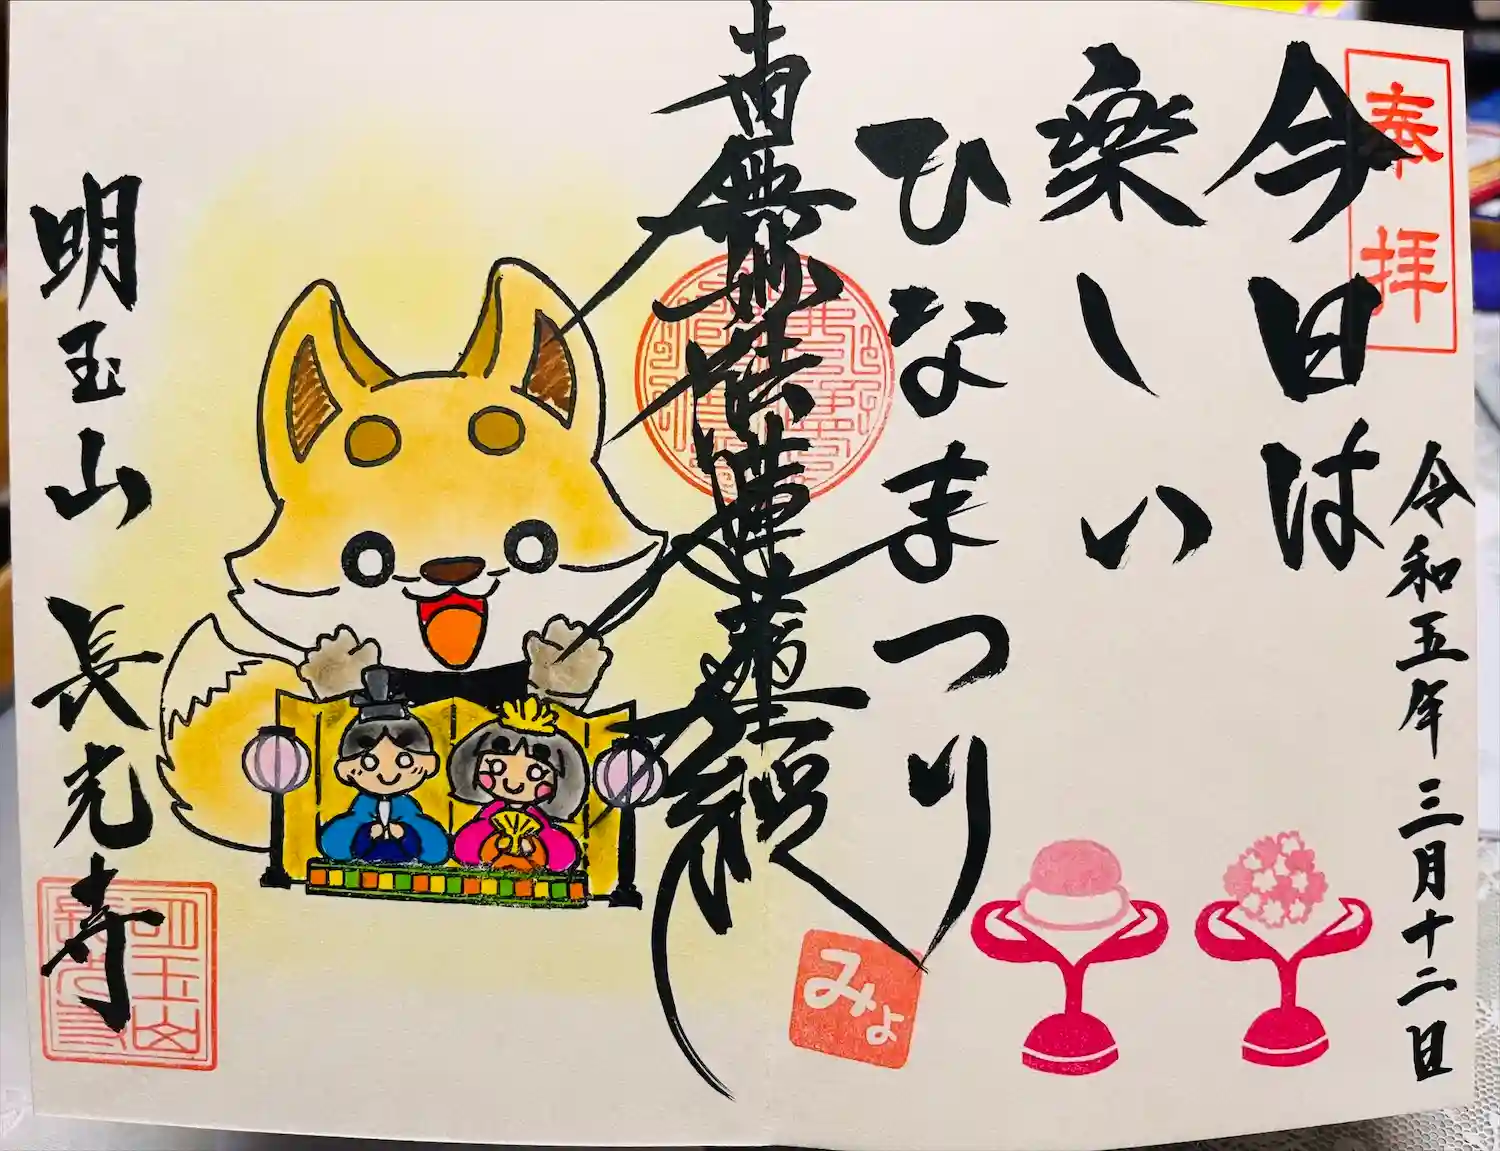 奉拝
令和五年三月十二日
今日は
楽しい
ひなまつり
南無妙法蓮華経
みょ
明玉山 長光寺